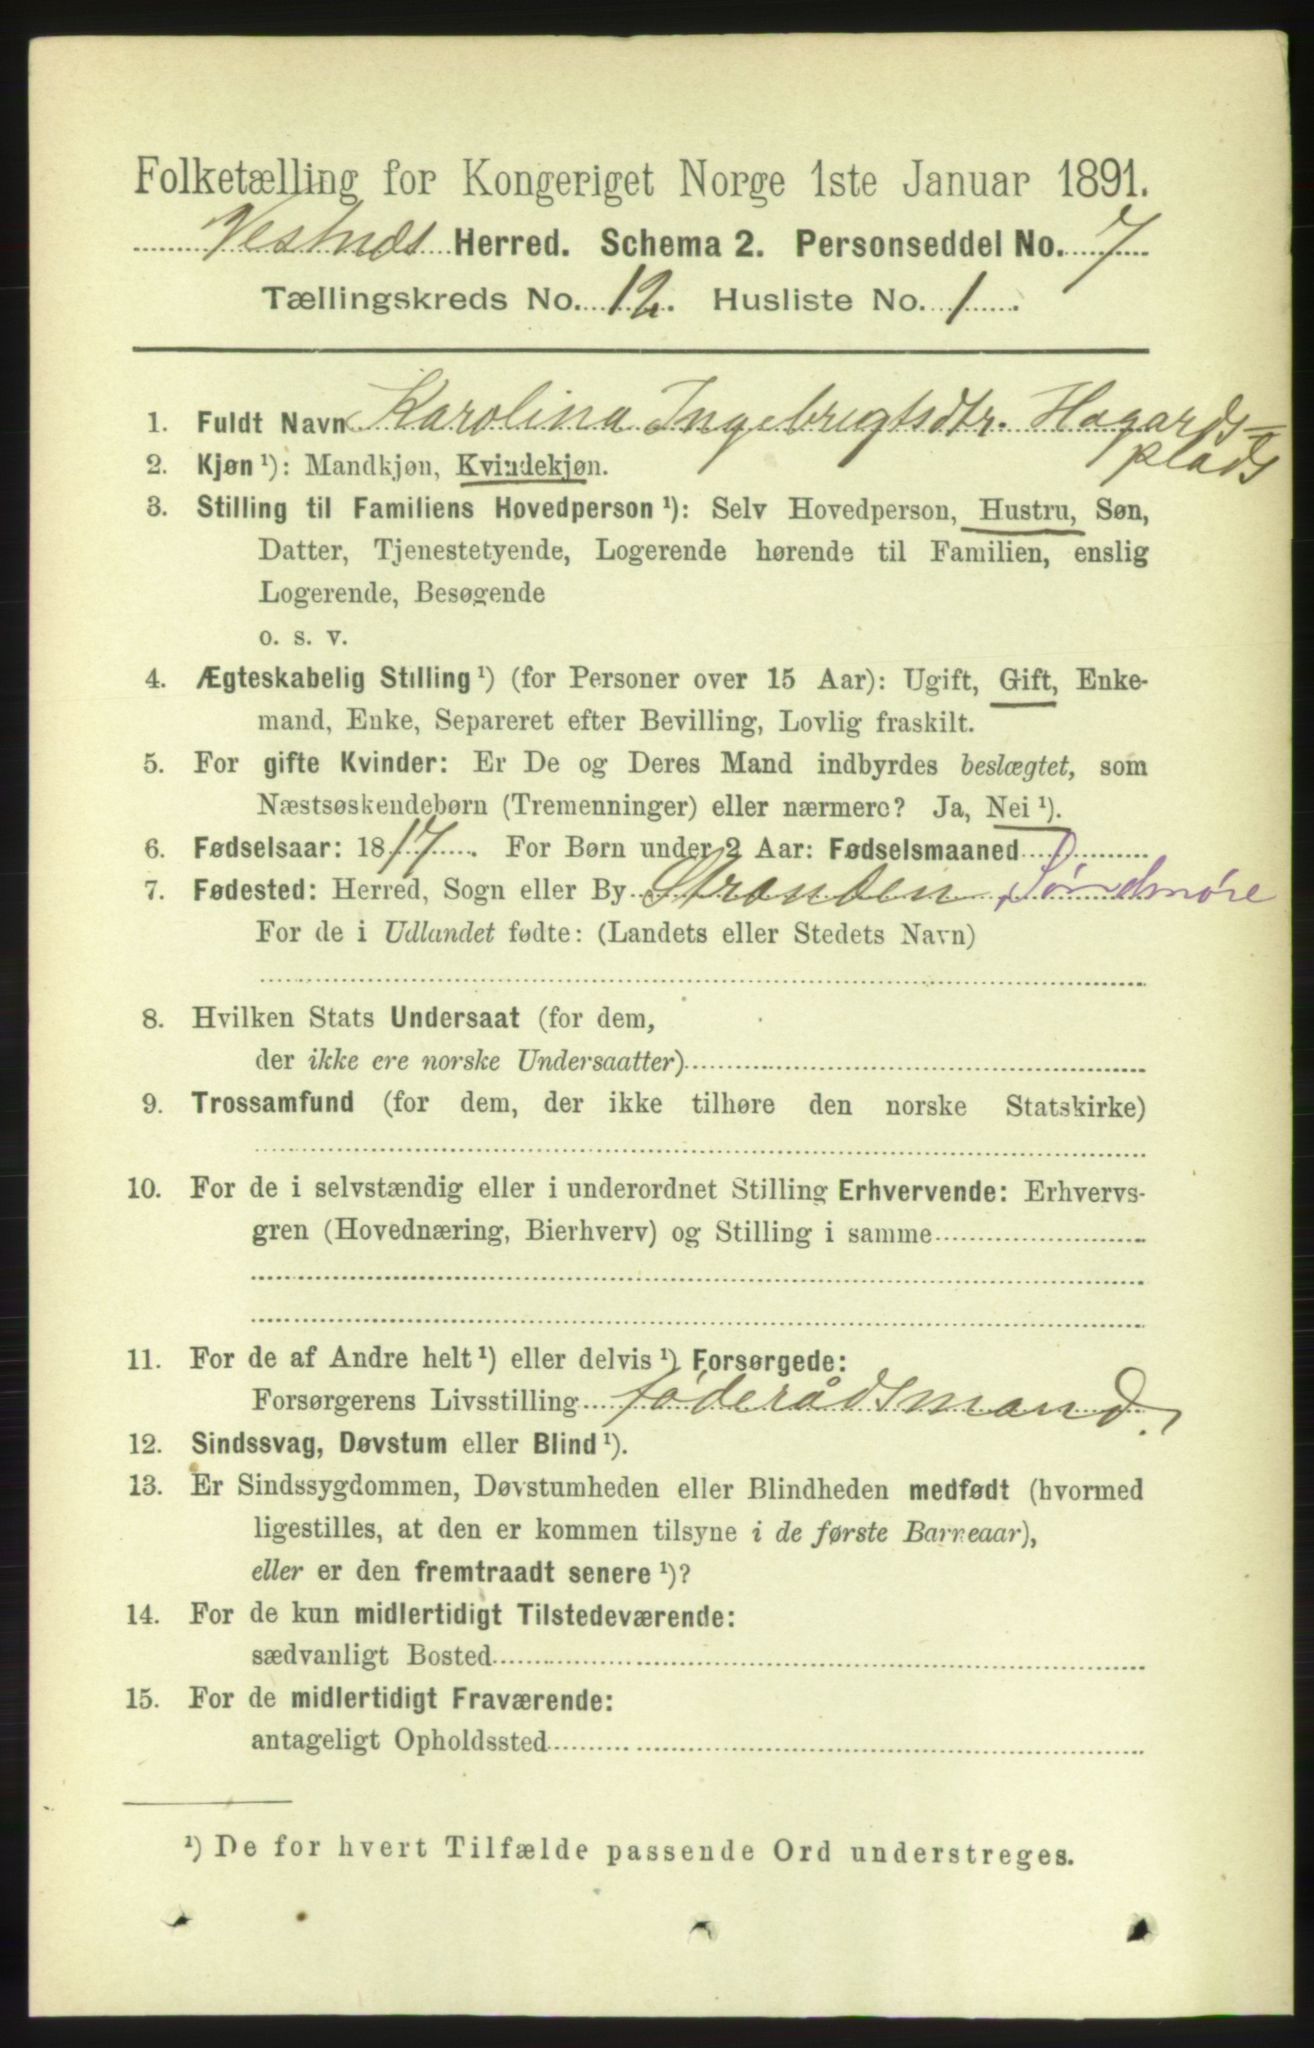 Folketælling for Kongeriget Norge 1ste Januar 1891.
Vestnæs Herred. Schema 2. Personseddel No. 7
Tællingskreds No. 12. Husliste No. 1.
1. Fuldt Navn Karolina Ingebrigtsdtr. Hagards=
plads
2. Kjøn¹): Mandkjøn, Kvindekjøn.
3. Stilling til Familiens Hovedperson¹): Selv Hovedperson, Hustru, Søn,
Datter, Tjenestetyende, Logerende hørende til Familien, enslig
Logerende, Besøgende
o. s. v.
4. Ægteskabelig Stilling¹) (for Personer over 15 Aar): Ugift, Gift, Enke-
mand, Enke, Separeret efter Bevilling, Lovlig fraskilt.
5. For gifte Kvinder: Er De og Deres Mand indbyrdes beslægtet, som
Næstsøskendebørn (Tremenninger) eller nærmere? Ja, Nei¹).
6. Fødselsaar: 1817. For Børn under 2 Aar: Fødselsmaaned
7. Fødested: Herred, Sogn eller By Stranden, Søndmøre
For de i Udlandet fødte: (Landets eller Stedets Navn)
8. Hvilken Stats Undersaat (for dem,
der ikke ere norske Undersaatter)
9. Trossamfund (for dem, der ikke tilhøre den norske Statskirke)
10. For de i selvstændig eller i underordnet Stilling Erhvervende: Erhvervs-
gren (Hovednæring, Bierhverv) og Stilling i samme
11. For de af Andre helt¹) eller delvis¹) Forsørgede:
Forsørgerens Livsstilling føderådsmand.
12. Sindssvag, Døvstum eller Blind¹).
13. Er Sindssygdommen, Døvstumheden eller Blindheden medfødt (hvormed
ligestilles, at den er kommen tilsyne i de første Barneaar),
eller er den fremtraadt senere¹)?
14. For de kun midlertidigt Tilstedeværende:
sædvanligt Bosted
15. For de midlertidigt Fraværende:
antageligt Opholdssted
¹) De for hvert Tilfælde passende Ord understreges.